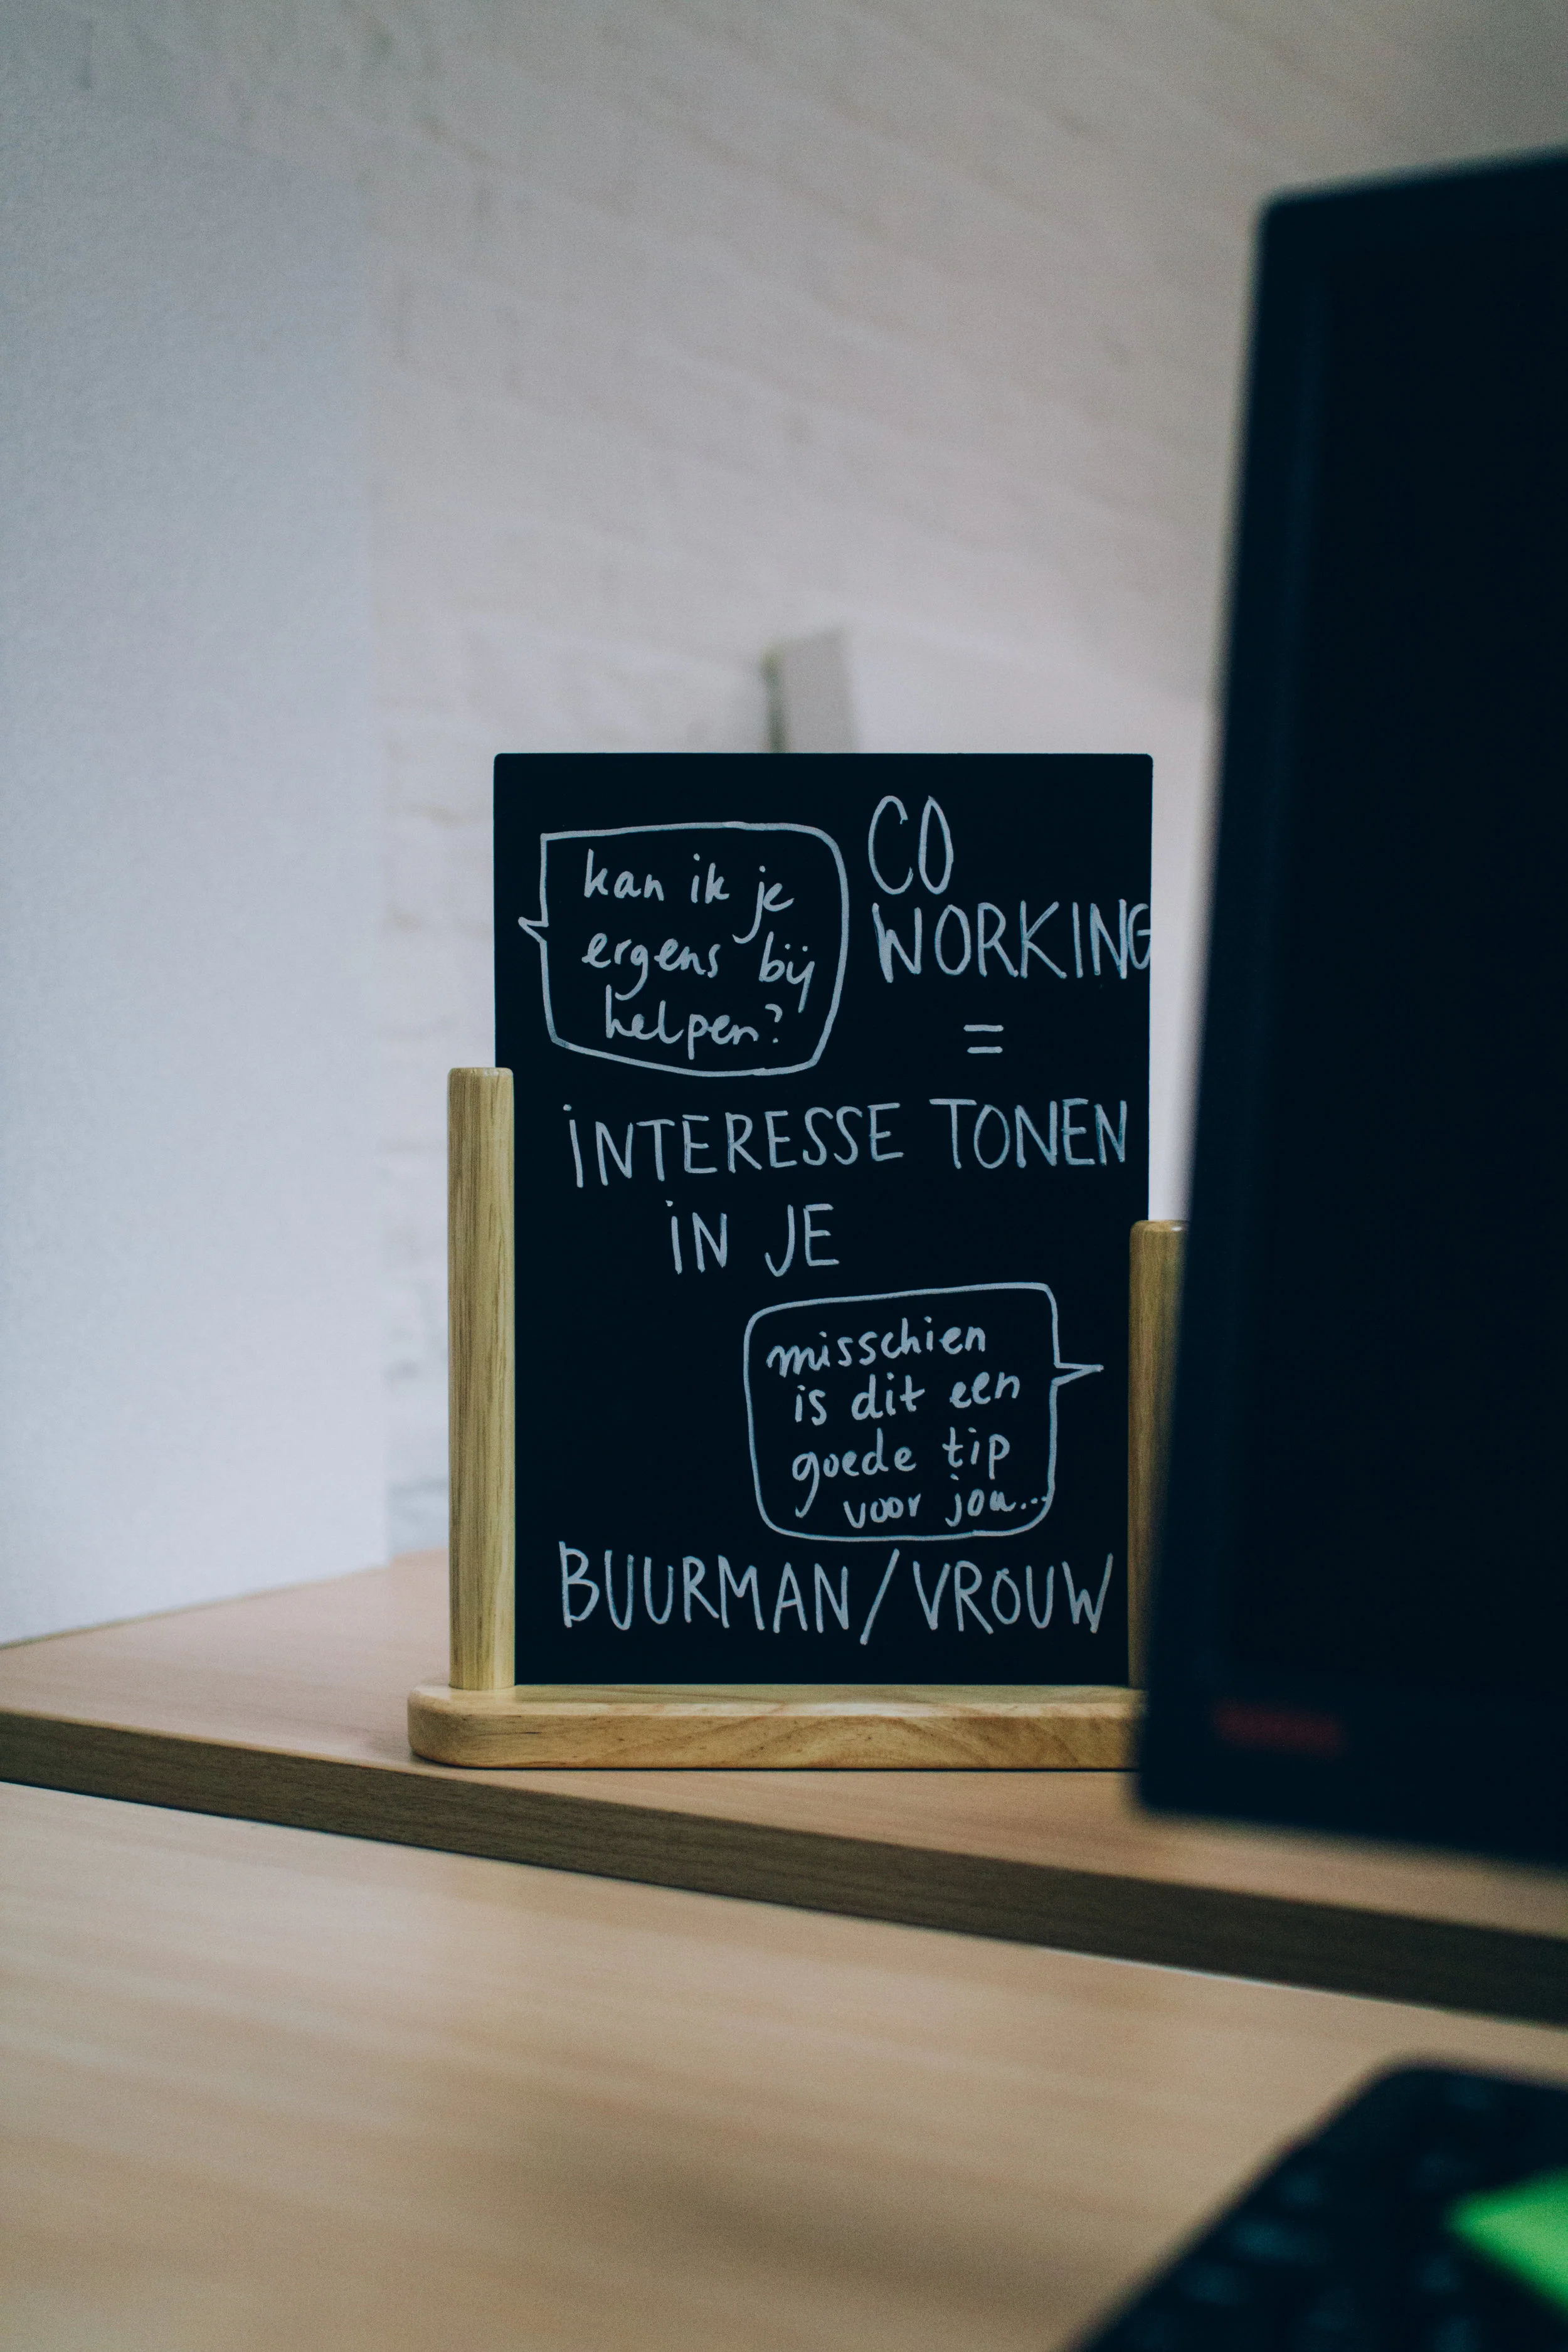 kan ik je
ergens bij
helpen?
CO
WORKING
=
INTERESSE TONEN
IN JE
misschien
is dit een
goede tip
voor jou...
BUURMAN/VROUW